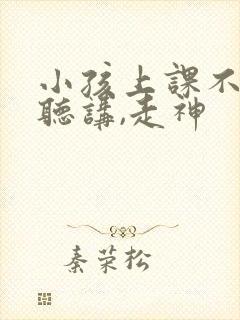 小孩上課不
聽講,走神
秦荣松